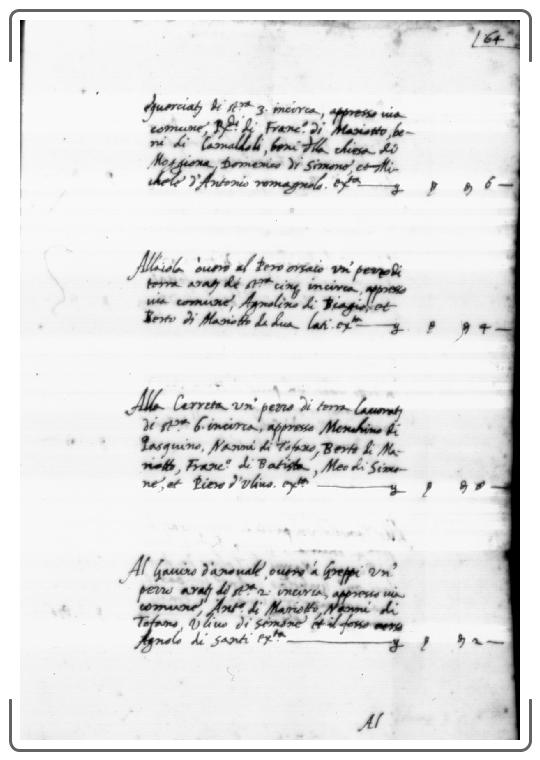 164
di st.ra 3. incirca, appresso via
comune, di Franc.o di Mariotto, be-
ni di Camaldoli, beni d'lla chiesa di
Moggiona, Domenico di Simone, et Mi-
chele d'Antonio romagnolo. ext.a 6 —
Allaiola overo al Pero orsaio un' pezzo di
terra di st.ra cinq incirca, appresso
via comune, Agnolino di Biagio, et
Berto di Mariotto da dua lati. ext.a 4 —
Alla Carreta un' pezzo di terra
di st.ra 6. incirca, appresso Menchino di
Pasquino, Nanni di Tofano, Berto di Ma-
riotto, Franc.o di Batista, Meo di Simo-
ne, et Piero d'Ulivo. ext.a 8 —
Al d'anovale, overo à Greppi un'
pezzo di st.ra 2 incirca, appresso via
comune, Ant.o di Mariotto, Nanni di
Tofano, Ulivo di Simone et il fosso
Agnolo di Santi ext.a 2 —
Al